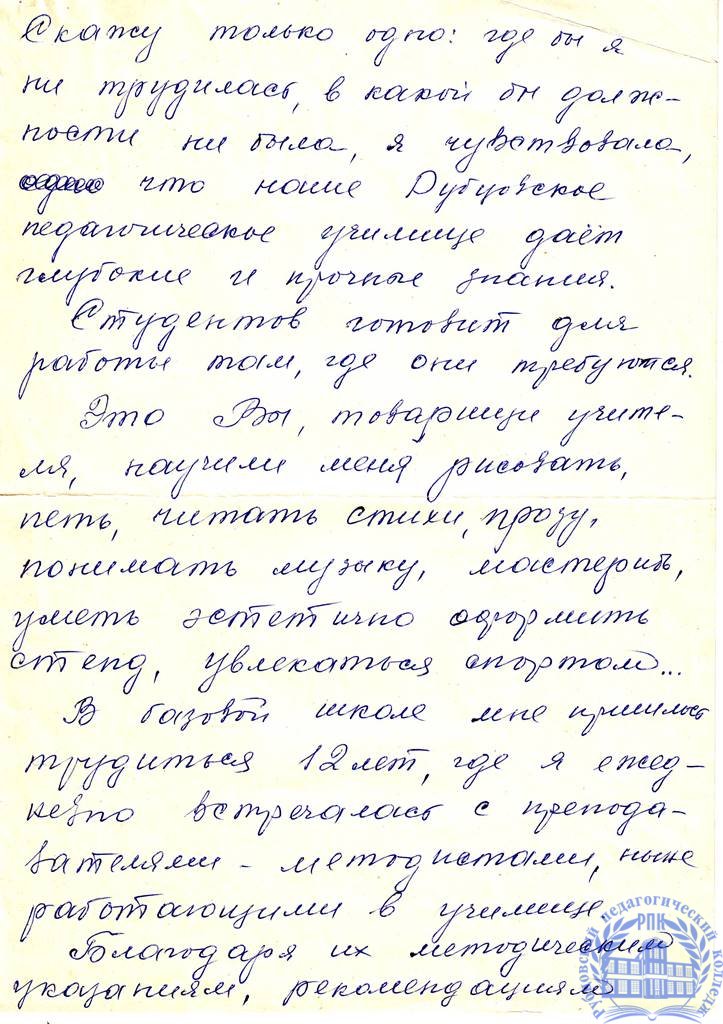 Скажу только одно: где бы я
ни трудилась, в какой бы долж-
ности ни была, я чувствовала,
что наше Дубовское
педагогическое училище даёт
глубокие и прочные знания.
Студентов готовит для
работы там, где они требуются.
Это Вы, товарищи учите-
ля, научили меня рисовать,
петь, читать стихи, прозу,
понимать музыку, мастерить,
уметь эстетично оформить
стенд, увлекаться спортом...
В базовой школе мне пришлось
трудиться 12 лет, где я ежед-
невно встречалась с препода-
вателями - методистами, ныне
работающими в училище.
Благодаря их методическим
указаниям, рекомендациям
РПК
педагогический колледж